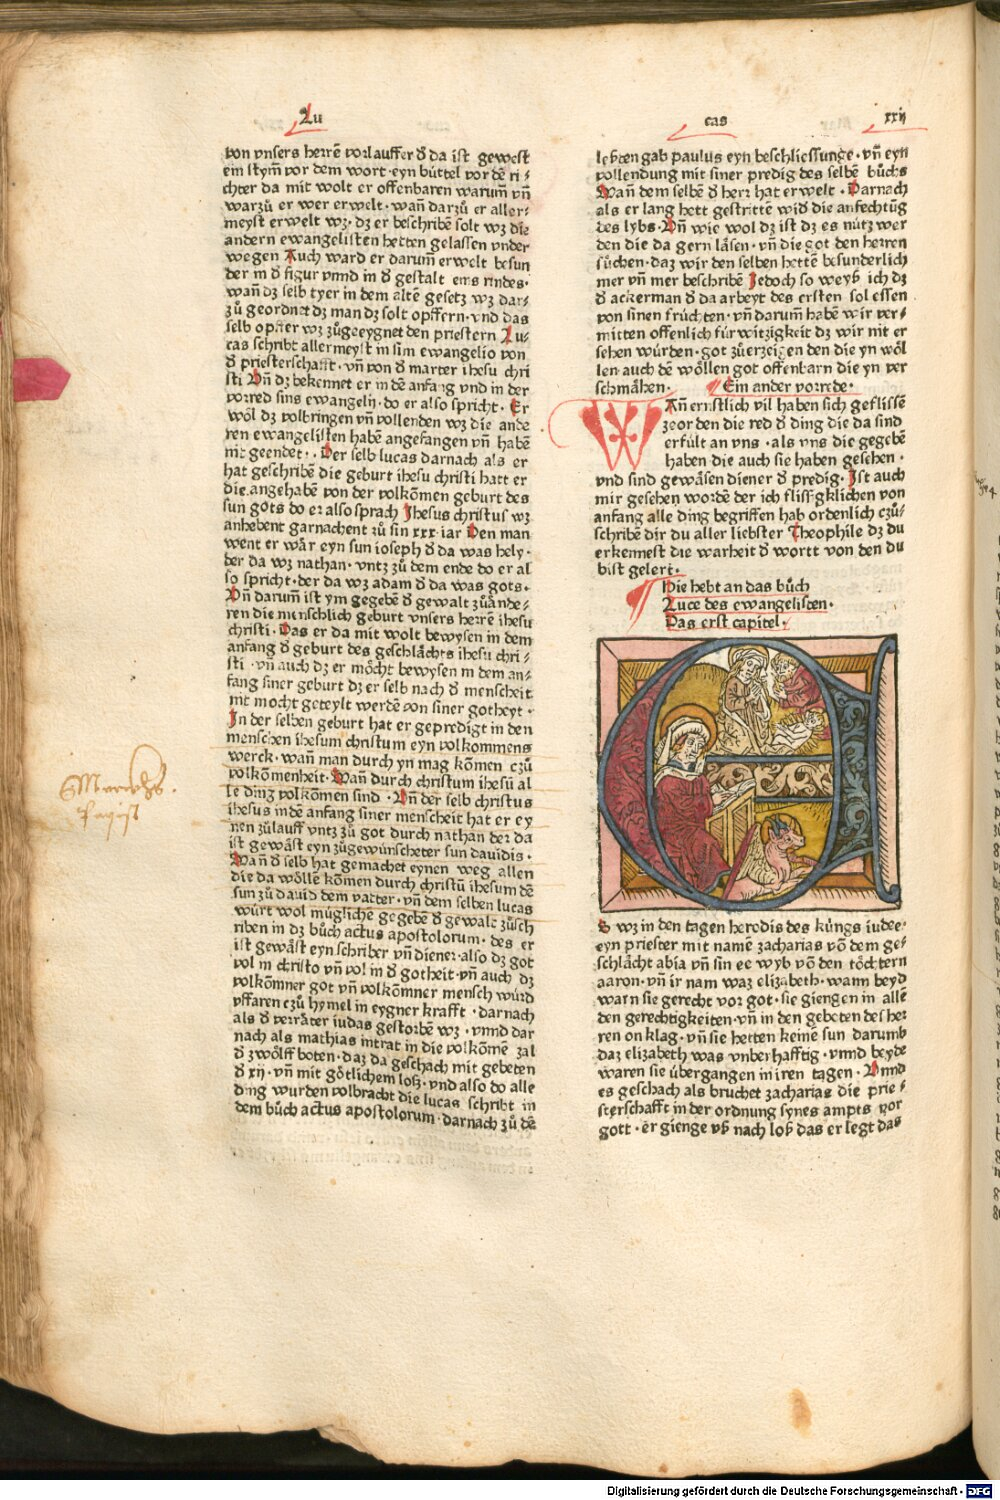 Lu
cas
xxij
von vnsers herrē vorlauffer d̄ da ist gewest
ein stym̄ vor dem wort · eyn büttel vor dē ri⸗
chter da mit wolt er offenbaren warum̄ vn̄
warzů er wer erwelt · wan̄ darzů er aller⸗
meyst erwelt wz · dz er beschribē solt wz die
andern ewangelisten hetten gelassen vnder
wegen Auch ward er darum̄ erwelt besun
der in d̄ figur vnnd in d̄ gestalt eins rindes·
wan̄ dz selb tyer in dem altē gesetz wz dar⸗
zů geordnet dz man dz solt opffern · vnd das
selb opffer wz zůgeeygnet den priestern Lu⸗
cas schribt allermeyst in sim ewangelio von
d̄ priesterschafft · vn̄ von d̄ marter ihesu chri
sti Vn̄ dz bekennet er in dē anfang vnd in der
vorred sins ewangelij · do er also spricht · Er
wöl dz volbringen vn̄ vollenden wz die ande
ren ewangelisten habē angefangen vn̄ habē
nit geendet · · Der selb lucas darnach als er
hat geschribē die geburt ihesu christi hatt er
die angehabē von der volkōmen geburt des
sun gots do er also sprach Jhesus christus wz
anhebent garnachent zů sin xxx · iar Den man
went er wår eyn sun ioseph d̄ da was hely ·
der da wz nathan · vntz zů dem ende do er al
so spricht · der da wz adam d̄ da was gots ·
Vn̄ darum̄ ist ym gegebē d̄ gewalt zůånde⸗
ren die menschlich geburt vnsers herrē ihesu
christi · Das er da mit wolt bewysen in dem
anfang d̄ geburt des geschlåchts ihesu chri⸗
sti · vn̄ auch dz er möcht bewesen in dem an⸗
fang siner geburt dz er selb nach d̄ menscheit
nit mocht geteylt werdē von siner gotheyt ·
In der selben geburt hat er gepredigt in den
menschen ihesum christum eyn volkommens
werck · wan̄ man durch yn mag kōmen czů
volkōmenheit · Wan̄ durch christum ihesū al
le ding volkōmen sind · Vn̄ der selb christus
ihesus in dē anfang siner menscheit hat er ey
nen zůlauff vntz zů got durch nathan der da
ist gewåst eyn zůgewünscheter sun dauidis ·
Wan̄ d̄ selb hat gemachet eynen weg allen
die da wöllē kōmen durch christū ihesum dē
sun zů dauid dem vatter · vn̄ dem selben lucas
würt wol mügliche gegebē d̄ gewalt zůsch
riben in dz bůch actus apostolorum · des er
ist gewåst eyn schriber vn̄ diener · also dz got
vol in christo vn̄ vol in d̄ gotheit · vn̄ auch dz
volkōmner got vn̄ volkōmner mensch würd
vffaren czů hymel in eygner krafft · darnach
als d̄ verråter iudas gestorbē wz · vnnd dar
nach als mathias intrat in die volkōmē zal
d̄ zwölff boten · daz da geschach mit gebeten
d̄ xij · vn̄ mit götlichem loß · vnd also do alle
ding wurden volbracht die lucas schribt in
dem bůch actus apostolorum · darnach zů dē
letzten gab paulus eyn beschliessunge · vn̄ eyn
vollendung mit siner predig des selbē bůchs
Wan̄ dem selbē d̄ herr hat erwelt · Darnach
als er lang hett gestrittē wid̄ die anfechtūg
des lybs · Vn̄ wie wol dz ist dz es nütz wer
den die da gern låsen · vn̄ die got den herren
sůchen · daz wir den selben hettē besunderlich
mer vn̄ mer beschribē Jedoch so weyß ich dz
d̄ ackerman d̄ da arbeyt des ersten sol essen
von sinen früchten · vn̄ darum̄ habē wir ver⸗
mitten offenlich fürwitzigkeit dz wir nit er
sehen würden · got zůerzeigen den die yn wöl
len · auch dē wöllen got offenbarn die yn ver
schmåhen · Ein ander vorrede ·
WAn̄ ernstlich vil haben sich geflissē
zeorden die red d̄ ding die da sind
erfült an vns · als vns die gegebē
haben die auch sie haben gesehen ·
vnd sind gewåsen diener d̄ predig · Ist auch
mir gesehen wordē der ich flissgklichen von
anfang alle ding begriffen hab ordenlich czů⸗
schribē dir du aller liebster Theophile dz du
erkennest die warheit d̄ wortt von den du
bist gelert ·
Hie hebt an das bůch
Luce des ewangelisten ·
Das erst capitel ·
E
S wz in den tagen herodis des künigs iudee·
eyn priester mit namē zacharias vō dem ge⸗
schlåcht abia vn̄ sin ee wyb vō den töchtern
aaron · vn̄ ir nam waz elizabeth · wann beyd
warn sie gerecht vor got · sie giengen in allē
den gerechtigkeiten · vn̄ in den geboten des her
ren on klag · vn̄ sie hetten keinē sun darumb
daz elizabeth was vnberhafftig · vnnd beyde
waren sie übergangen in iren tagen · Vnnd
es geschach als bruchet zacharias die prie⸗
sterschafft in der ordnung synes ampts vor
gott · er gienge vß nach loß das er legt das
Digitalisierung gefördert durch die Deutsche Forschungsgemeinschaft - DFG